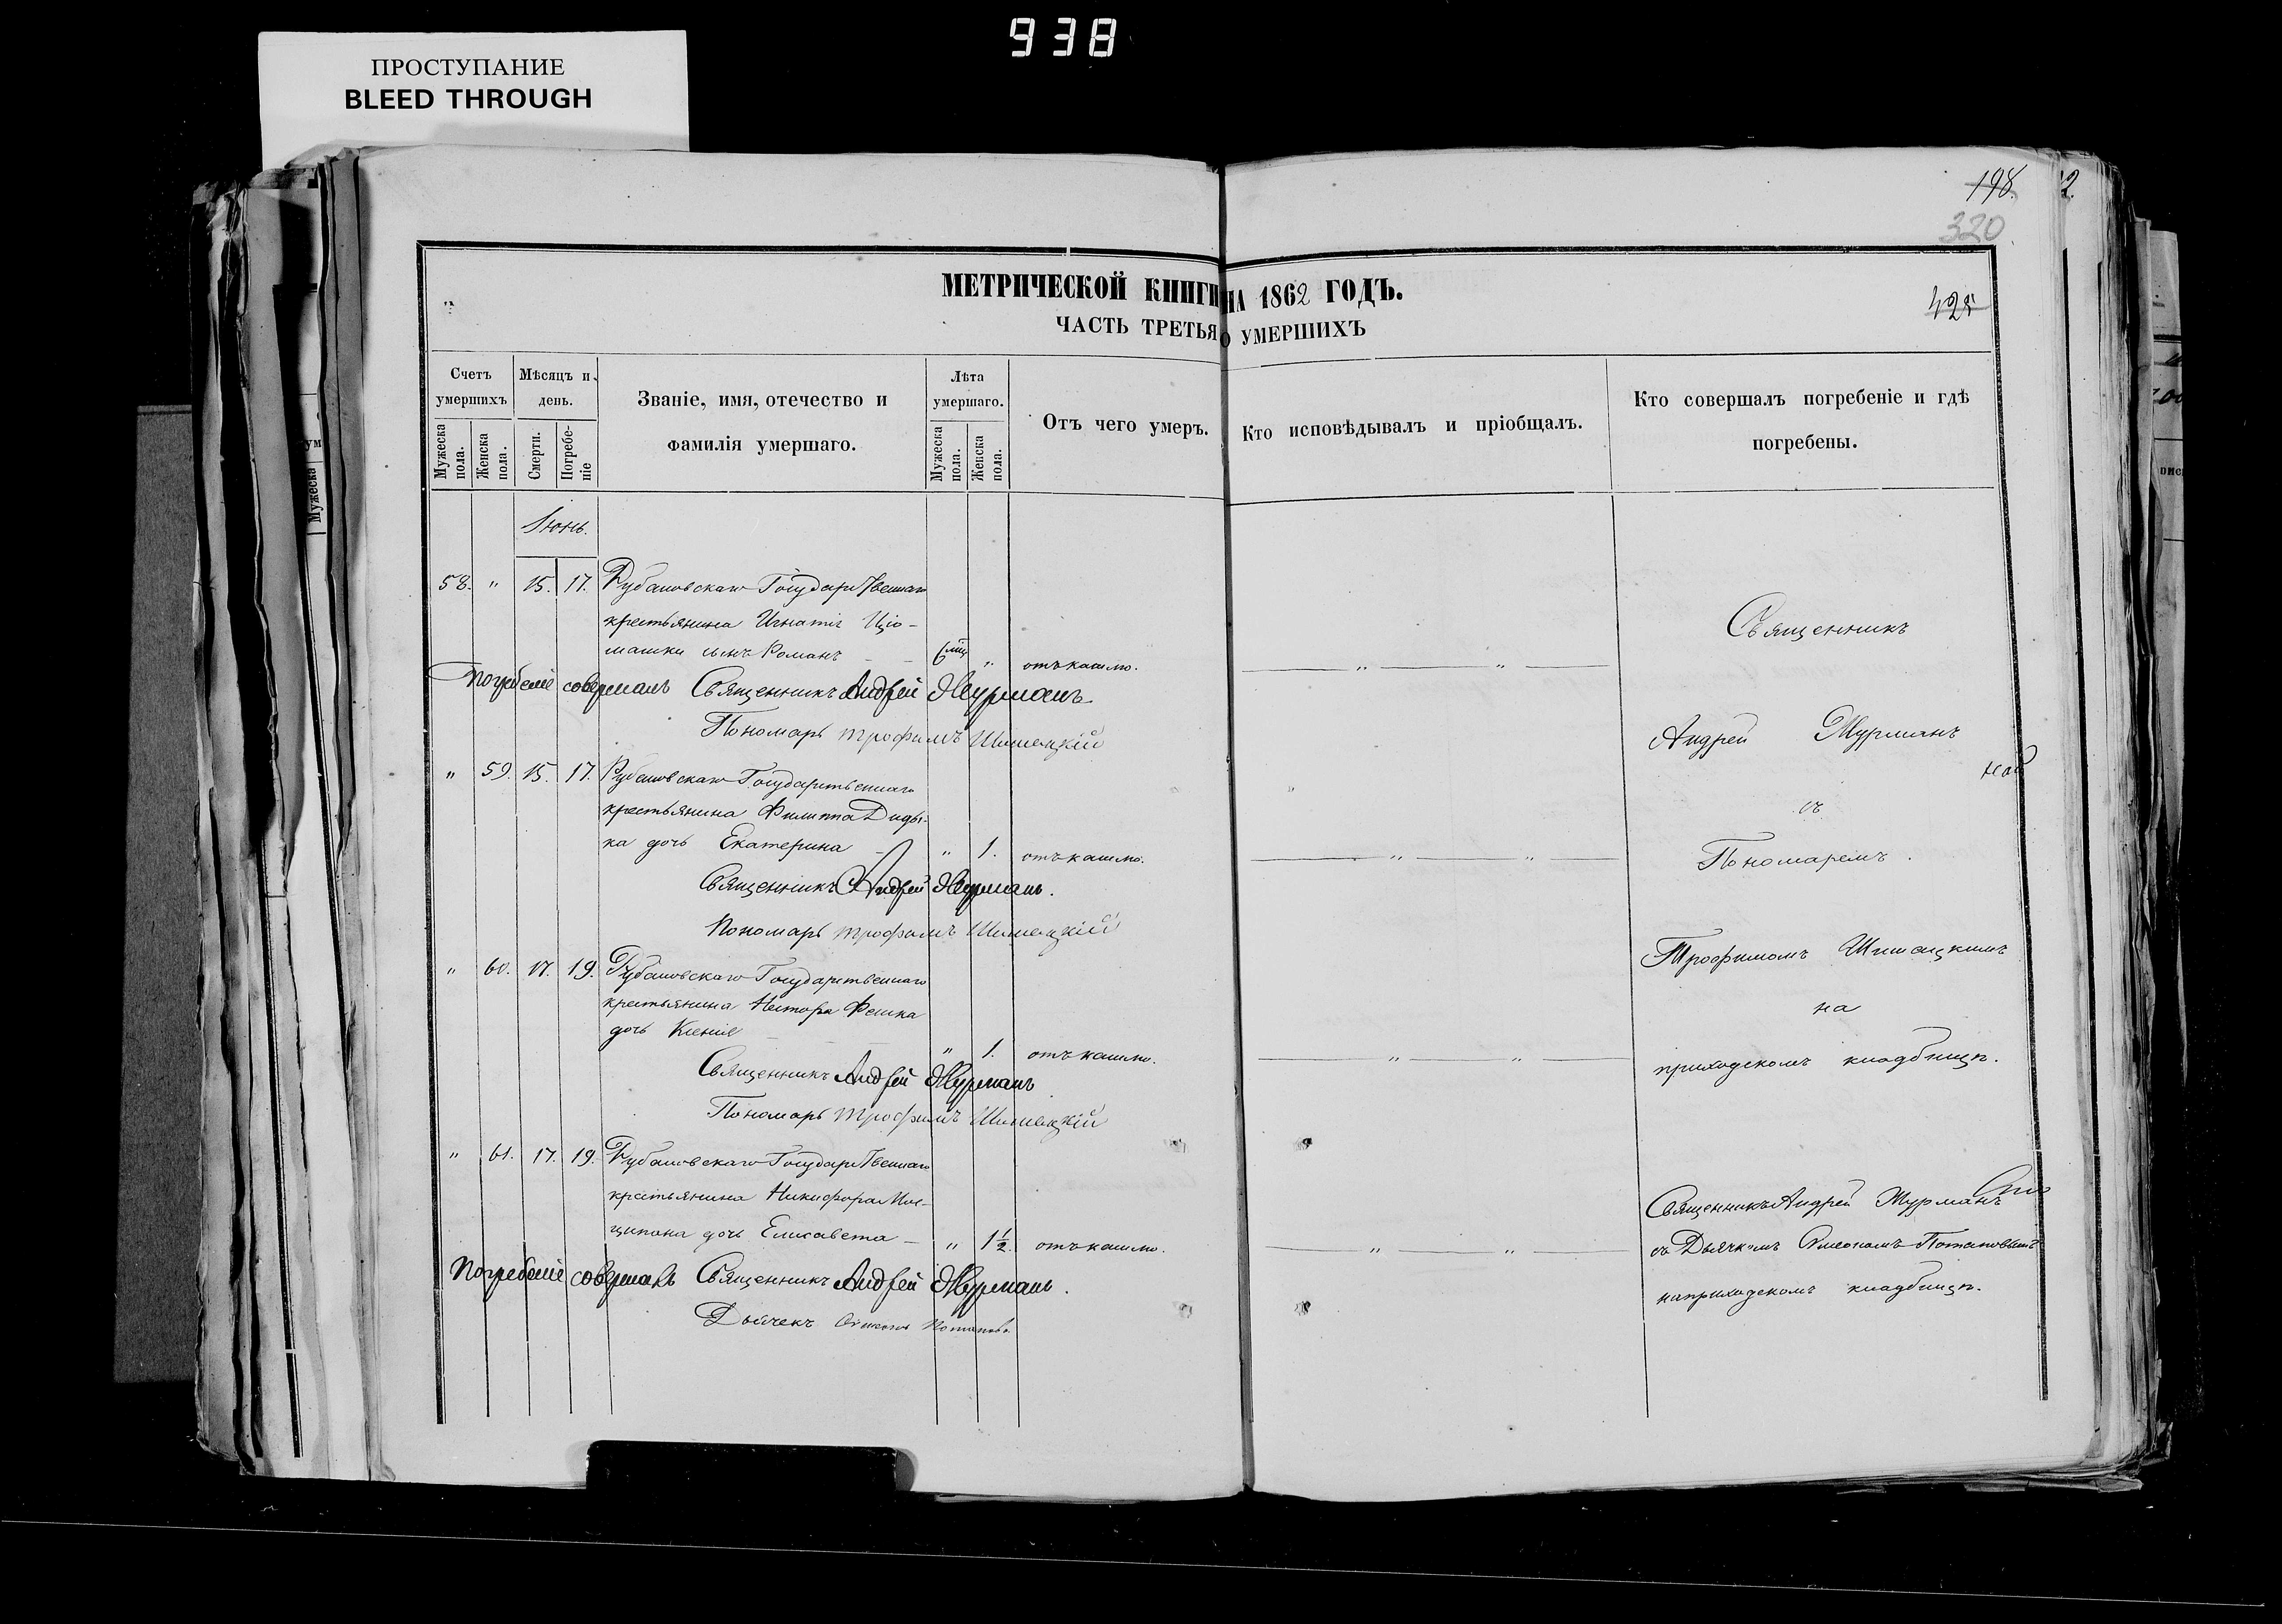 938
ПРОСТУПАНИЕ
BLEED THROUGH
198.
320
МЕТРИЧЕСКОЙ КНИГИ НА 1862 ГОДЪ.
ЧАСТЬ ТРЕТЬЯ О УМЕРШИХЪ
Счетъ умершихъ
Мѣсяцъ и день.
Званіе, имя, отечество и фамилія умершаго.
Лѣта умершаго.
Отъ чего умеръ.
Кто исповѣдывалъ и пріобщалъ.
Кто совершалъ погребеніе и гдѣ погребены.
Мужеска пола.
Женска пола.
Смерти.
Погребеніе
Мужеска пола.
Женска пола.
Іюнь.
58. " 15. 17. Рубановскаго Государственнаго
крестьянина Игнатія Ціо-
машки сынъ Романъ 6 мѣц " отъ кашлю.
Погребеніе совершалъ Священникъ Андрей Журманъ
Пономарь Трофимъ Шишацкій
" 59. 15. 17. Рубановскаго Государственнаго
крестьянина Филиппа Диды-
ка дочь Екатерина " 1. отъ кашлю.
Священникъ Андрей Журманъ.
Пономарь Трофимъ Шишацкій
" 60. 17. 19. Рубановскаго Государственнаго
крестьянина Нестора Фешка
дочь Ксенія " 1. отъ кашлю.
Священникъ Андрей Журманъ
Пономарь Трофимъ Шишацкій
" 61. 17. 19. Рубановскаго Государственнаго
крестьянина Никифора
дочь Елисавета " 1 1/2. отъ кашлю.
Погребеніе совершалъ Священникъ Андрей Журманъ.
Дьячекъ Симеонъ Потаповъ
Священникъ
Андрей Журманъ
съ
Пономаремъ.
Трофимомъ Шишацкимъ
на
приходскомъ кладбищѣ.
Священникъ Андрей Журманъ
съ Дьячкомъ Симеономъ Потаповымъ
на приходскомъ кладбищѣ.